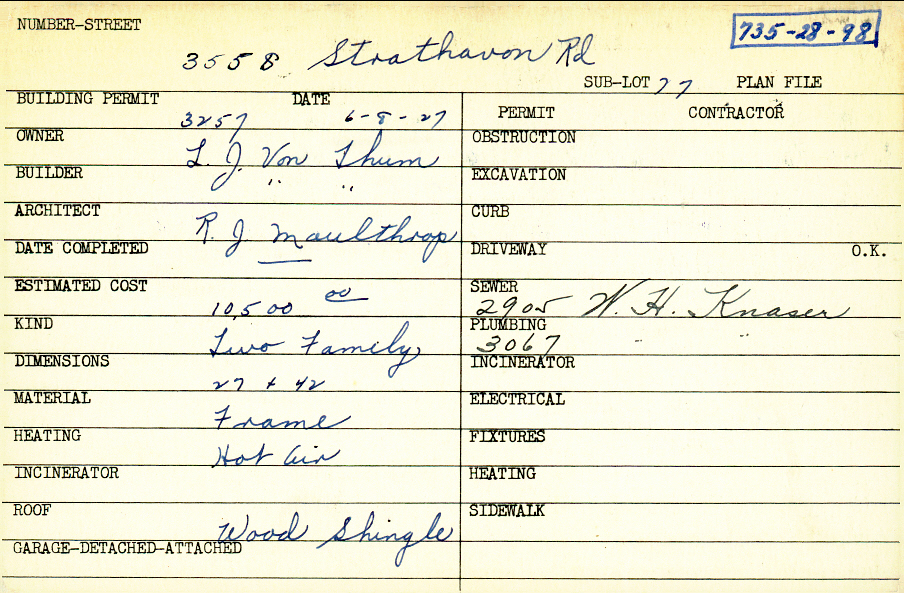 NUMBER-STREET
735-28-98
3558 Strathavon Rd
SUB-LOT 77 PLAN FILE
BUILDING PERMIT DATE
3257 6-8-27
PERMIT CONTRACTOR
OWNER
L. J. Von Thum
OBSTRUCTION
BUILDER
" "
EXCAVATION
ARCHITECT
R. J. Maulthrop
CURB
DATE COMPLETED
DRIVEWAY O.K.
ESTIMATED COST
10,500 00
SEWER
2905 W. H. Knaser
KIND
Two Family
PLUMBING
3067 " "
DIMENSIONS
27 + 42
INCINERATOR
MATERIAL
Frame
ELECTRICAL
HEATING
Hot Air
FIXTURES
INCINERATOR
HEATING
ROOF
Wood Shingle
SIDEWALK
GARAGE-DETACHED-ATTACHED